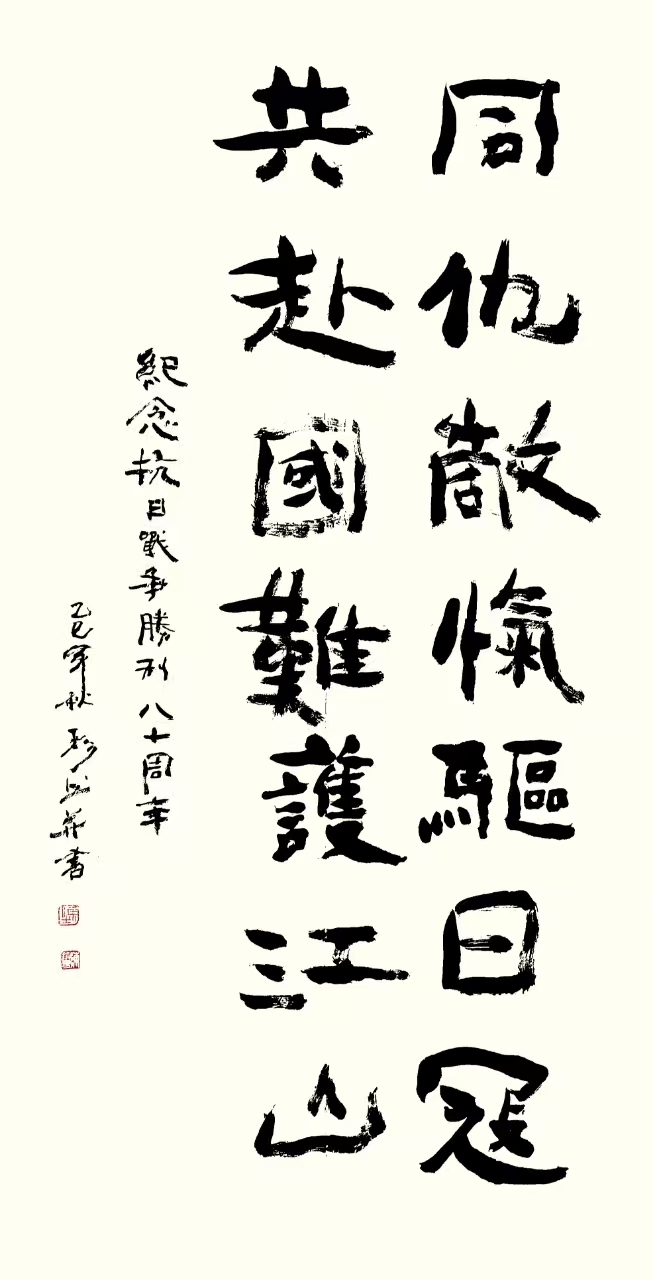 同仇敵愾驅日寇
共赴國難護江山
紀念抗日戰爭勝利八十周年
乙巳年秋 書